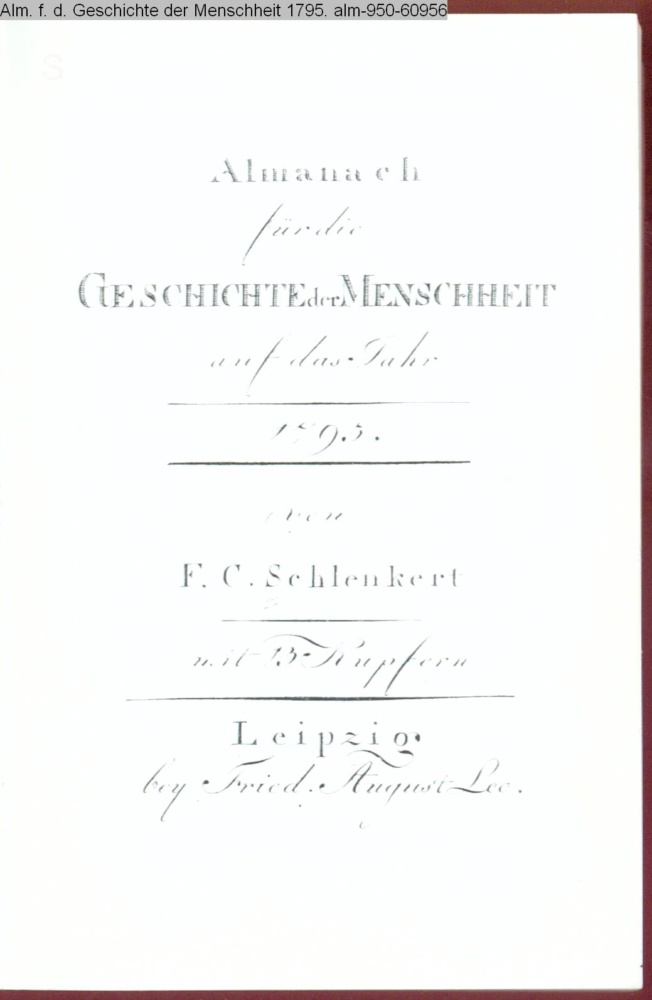 Alm. f. d. Geschichte der Menschheit 1795. alm-950-60956
Almanach
für die
GESCHICHTE der MENSCHHEIT
auf das Jahr
1795.
von
F. C. Schlenkert
mit 13 Kupfern
Leipzig.
bey Fried. August Leo.